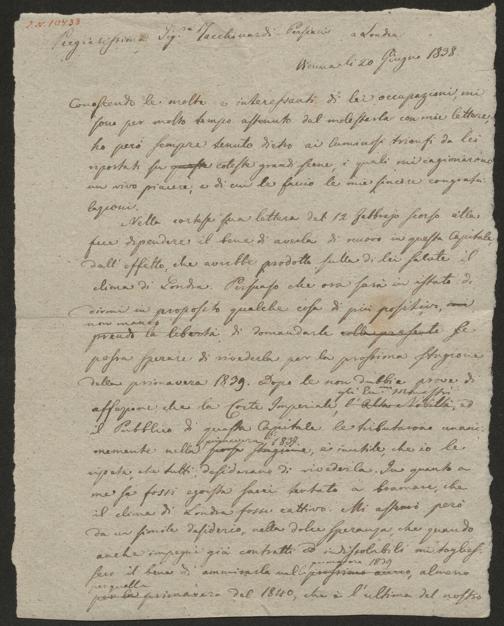 J.N. 10433
Pregiatissima Sig.ra Tacchinardi Persiani a Londra
Vienna li 20 Giugno 1838.
Conoscendo le molte e interessanti di lei occupazioni, mi
sono per molto tempo astenuto dal molestarla con mie lettere,
ho però sempre tenuto dietro ai luminosi trionfi da lei
riportati su queste coteste grandi scene, i quali mi cagionarono
un vivo piacere, e di cui le faccio le mie sincere congratu
lazioni.
Nella cortese sua lettera del 12 Febbrajo scorso ella
fece dipendere il bene di averla di nuovo in questa Capitale
dall'effetto, che avrebbe prodotto sulla di lei salute il
clima di Londra. Persuaso che ora sarà in istato di
dirmi in proposito qualche cosa di più positivo,
non manco
prendo la libertà di domandarle colla presente se
possa sperare di rivederla per la prossima stagione
della primavera 1839. Dopo le non dubbie prove di
affezione, che la Corte Imperiale l'alta Nobiltà, ed
il Pubblico di questa Capitale le tributarono unani
memente nella primavera 1838
stagione, è inutile, che io le
ripeta, che tutti desiderano di rivederla. In quanto a
me se fossi egoista sarei tentato a bramare, che
il clima di Londra fosse cattivo. Mi astengo però
da un simile desiderio, nella dolce speranza che quando
anche impegni già contratti ed indissolubili mi toglies-
sero il bene di ammirarla nel primavera 1839
prossimo almeno
per quella
per la primavera del 1840, che è l'ultima del nostro